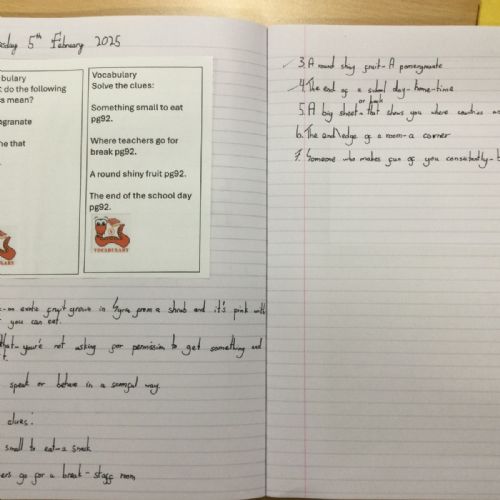 5th February 2025
bulary
do the following
s mean?
granate
e that
Vocabulary
Solve the clues:
Something small to eat
pg92.
Where teachers go for
break pg92.
A round shiny fruit pg92.
The end of the school day
pg92.
VOCABULARY
- an exotic fruit grown in Syria from a shrub and it's pink with
you can eat.
that - you're not asking for permission to get something and
speak or behave in a scornful way.
clues:
small to eat - a snack
ers go for a break - staff room
3. A round shiny fruit - A pomegranate
4. The end of a school day - home-time
5. A big sheet or book that shows you where countries
6. The end/edge of a room - a corner
7. Someone who makes fun of you consistently -